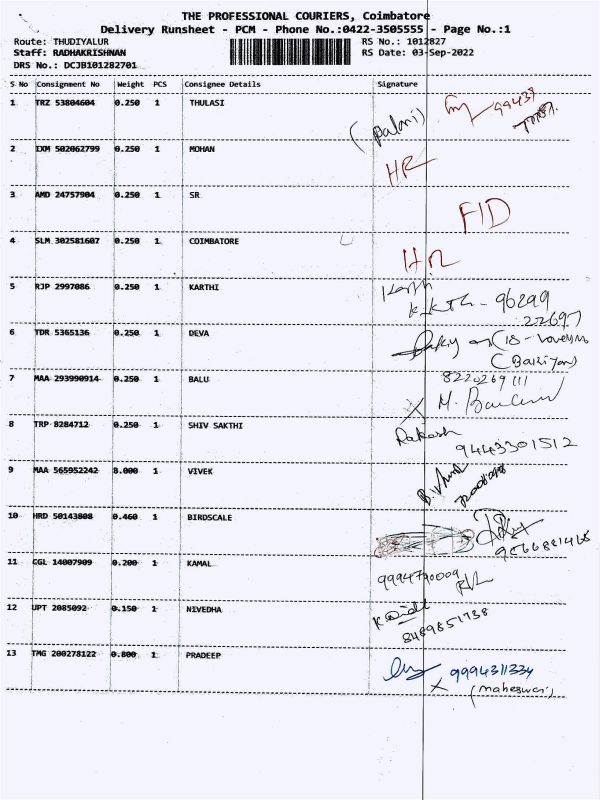 THE PROFESSIONAL COURIERS, Coimbatore
Delivery Runsheet - PCM - Phone No.:0422-3505555 - Page No.:1
Route: THUDIYALUR RS No.: 1012827
Staff: RADHAKRISHNAN RS Date: 03-Sep-2022
DRS No.: DCJB101282701
S No Consignment No Weight PCS Consignee Details Signature
1 TRZ 53804604 0.250 1 THULASI 99439
(Palani)
2 IXM 502062799 0.250 1 MOHAN
HR
3 AMD 24757904 0.250 1 SR
FID
4 SLM 302581607 0.250 1 COIMBATORE
HR
5 RJP 2997086 0.250 1 KARTHI Karthi
96299
22697
6 TDR 5365136 0.250 1 DEVA
7 MAA 293990914 0.250 1 BALU 8220269111
8 TRP 8284712 0.250 1 SHIV SAKTHI
Rakesh 9443301512
9 MAA 565952242 8.000 1 VIVEK
10 HRD 50143808 0.460 1 BIRDSCALE
11 CGL 14007909 0.200 1 KAMAL
9994790009
12 UPT 2085092 0.150 1 NIVEDHA
8489851738
13 TMG 200278122 0.800 1 PRADEEP
9994311334
(maheswari)